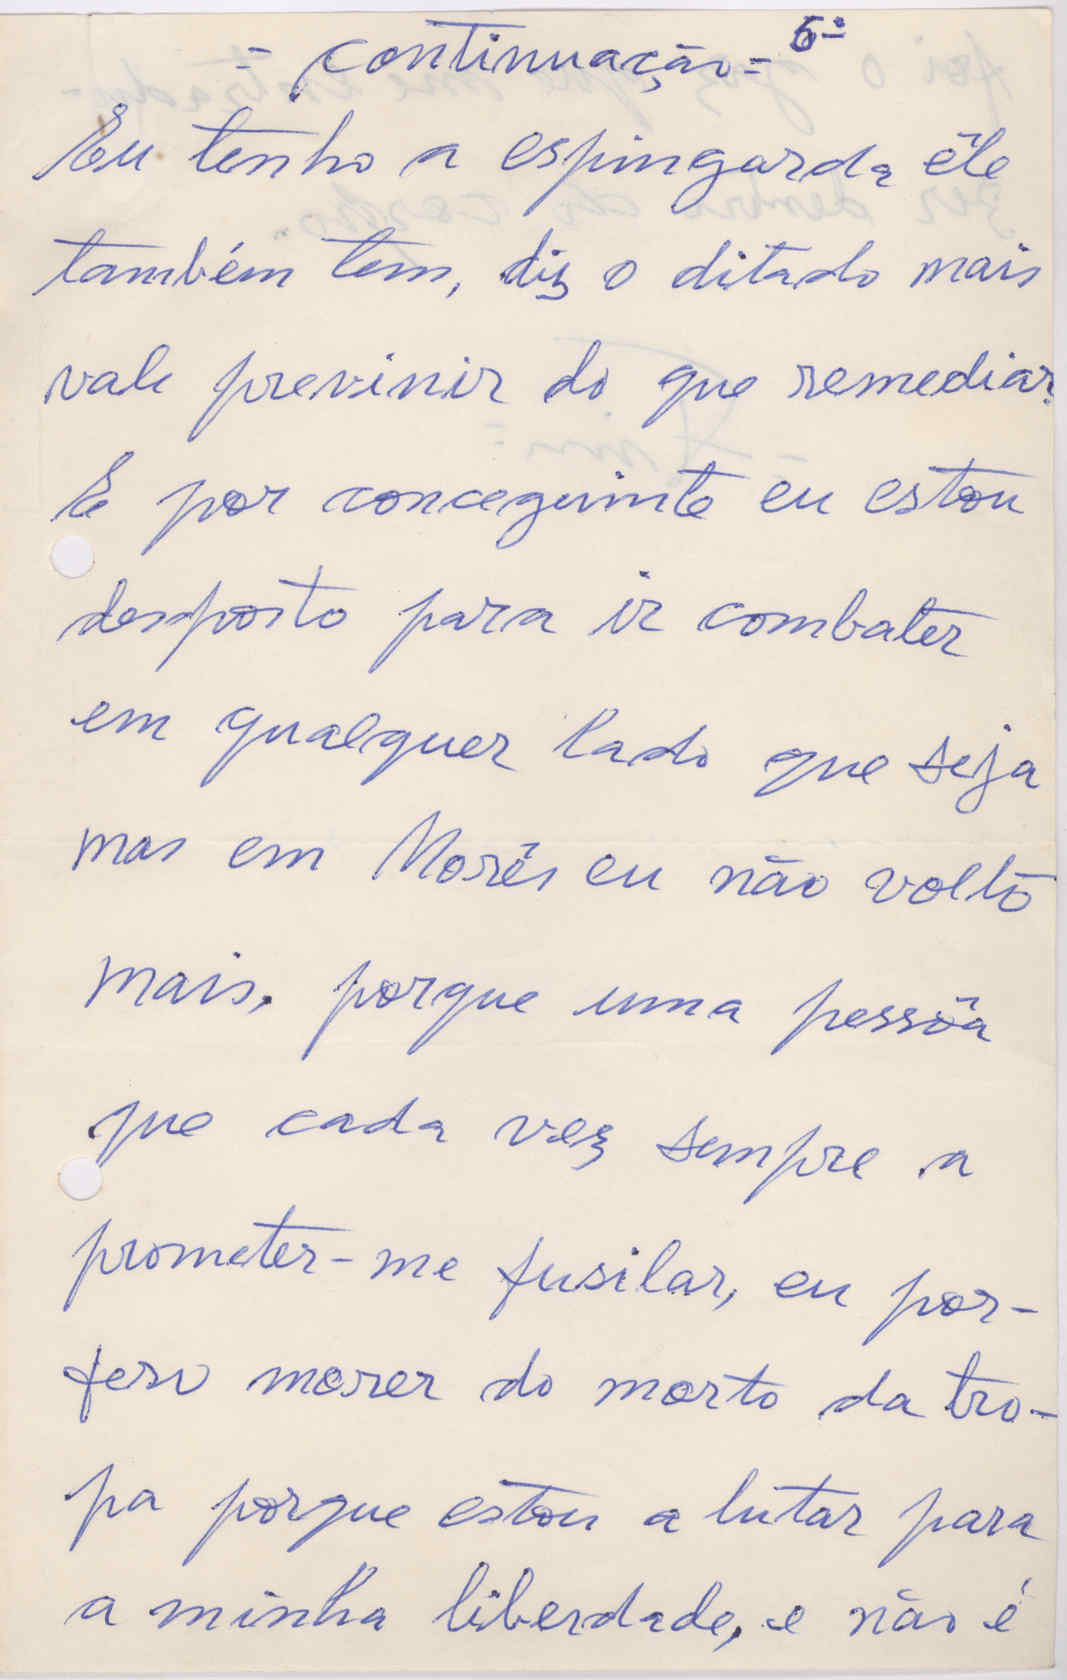 = continuação = 6º
Eu tenho a espingarda êle
também tem, diz o ditado mais
vale previnir do que remediar.
E por conceguinte eu estou
desposto para ir combater
em qualquer lado que seja
mas em Morés eu não volto
mais, porque uma pessôa
que cada vez sempre a
prometer-me fusilar, eu por-
fero morer do morto da tro-
pa porque estou a lutar para
a minha liberdade, e não é